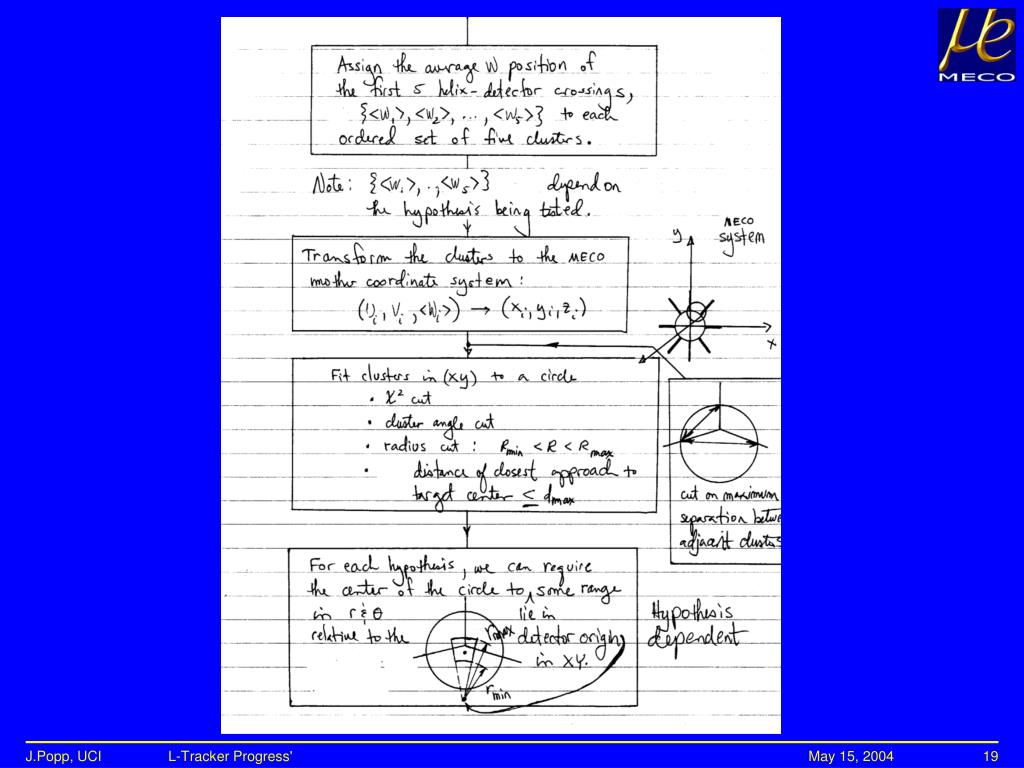 μe
MECO
Assign the average W position of
the first 5 helix-detector crossings,
{<W₁>, <W₂>, ..., <W₅>} to each
ordered set of five clusters.
Note: {<W₁>, .., <W₅>} depend on
the hypothesis being tested.
MECO
system
y
x
Transform the clusters to the MECO
mother coordinate system:
(Uᵢ, Vᵢ, <Wᵢ>) → (xᵢ, yᵢ, zᵢ)
Fit clusters in (xy) to a circle
• χ² cut
• cluster angle cut
• radius cut : Rmin < R < Rmax
• distance of closest approach to
target center ≤ dmax
cut on maximum
separation betwe
adjacent clusters
For each hypothesis, we can require
the center of the circle to ^ some range
in r & θ lie in
relative to the detector origin
in XY.
rmax
rmin
Hypothesis
dependent
J.Popp, UCI L-Tracker Progress' May 15, 2004 19